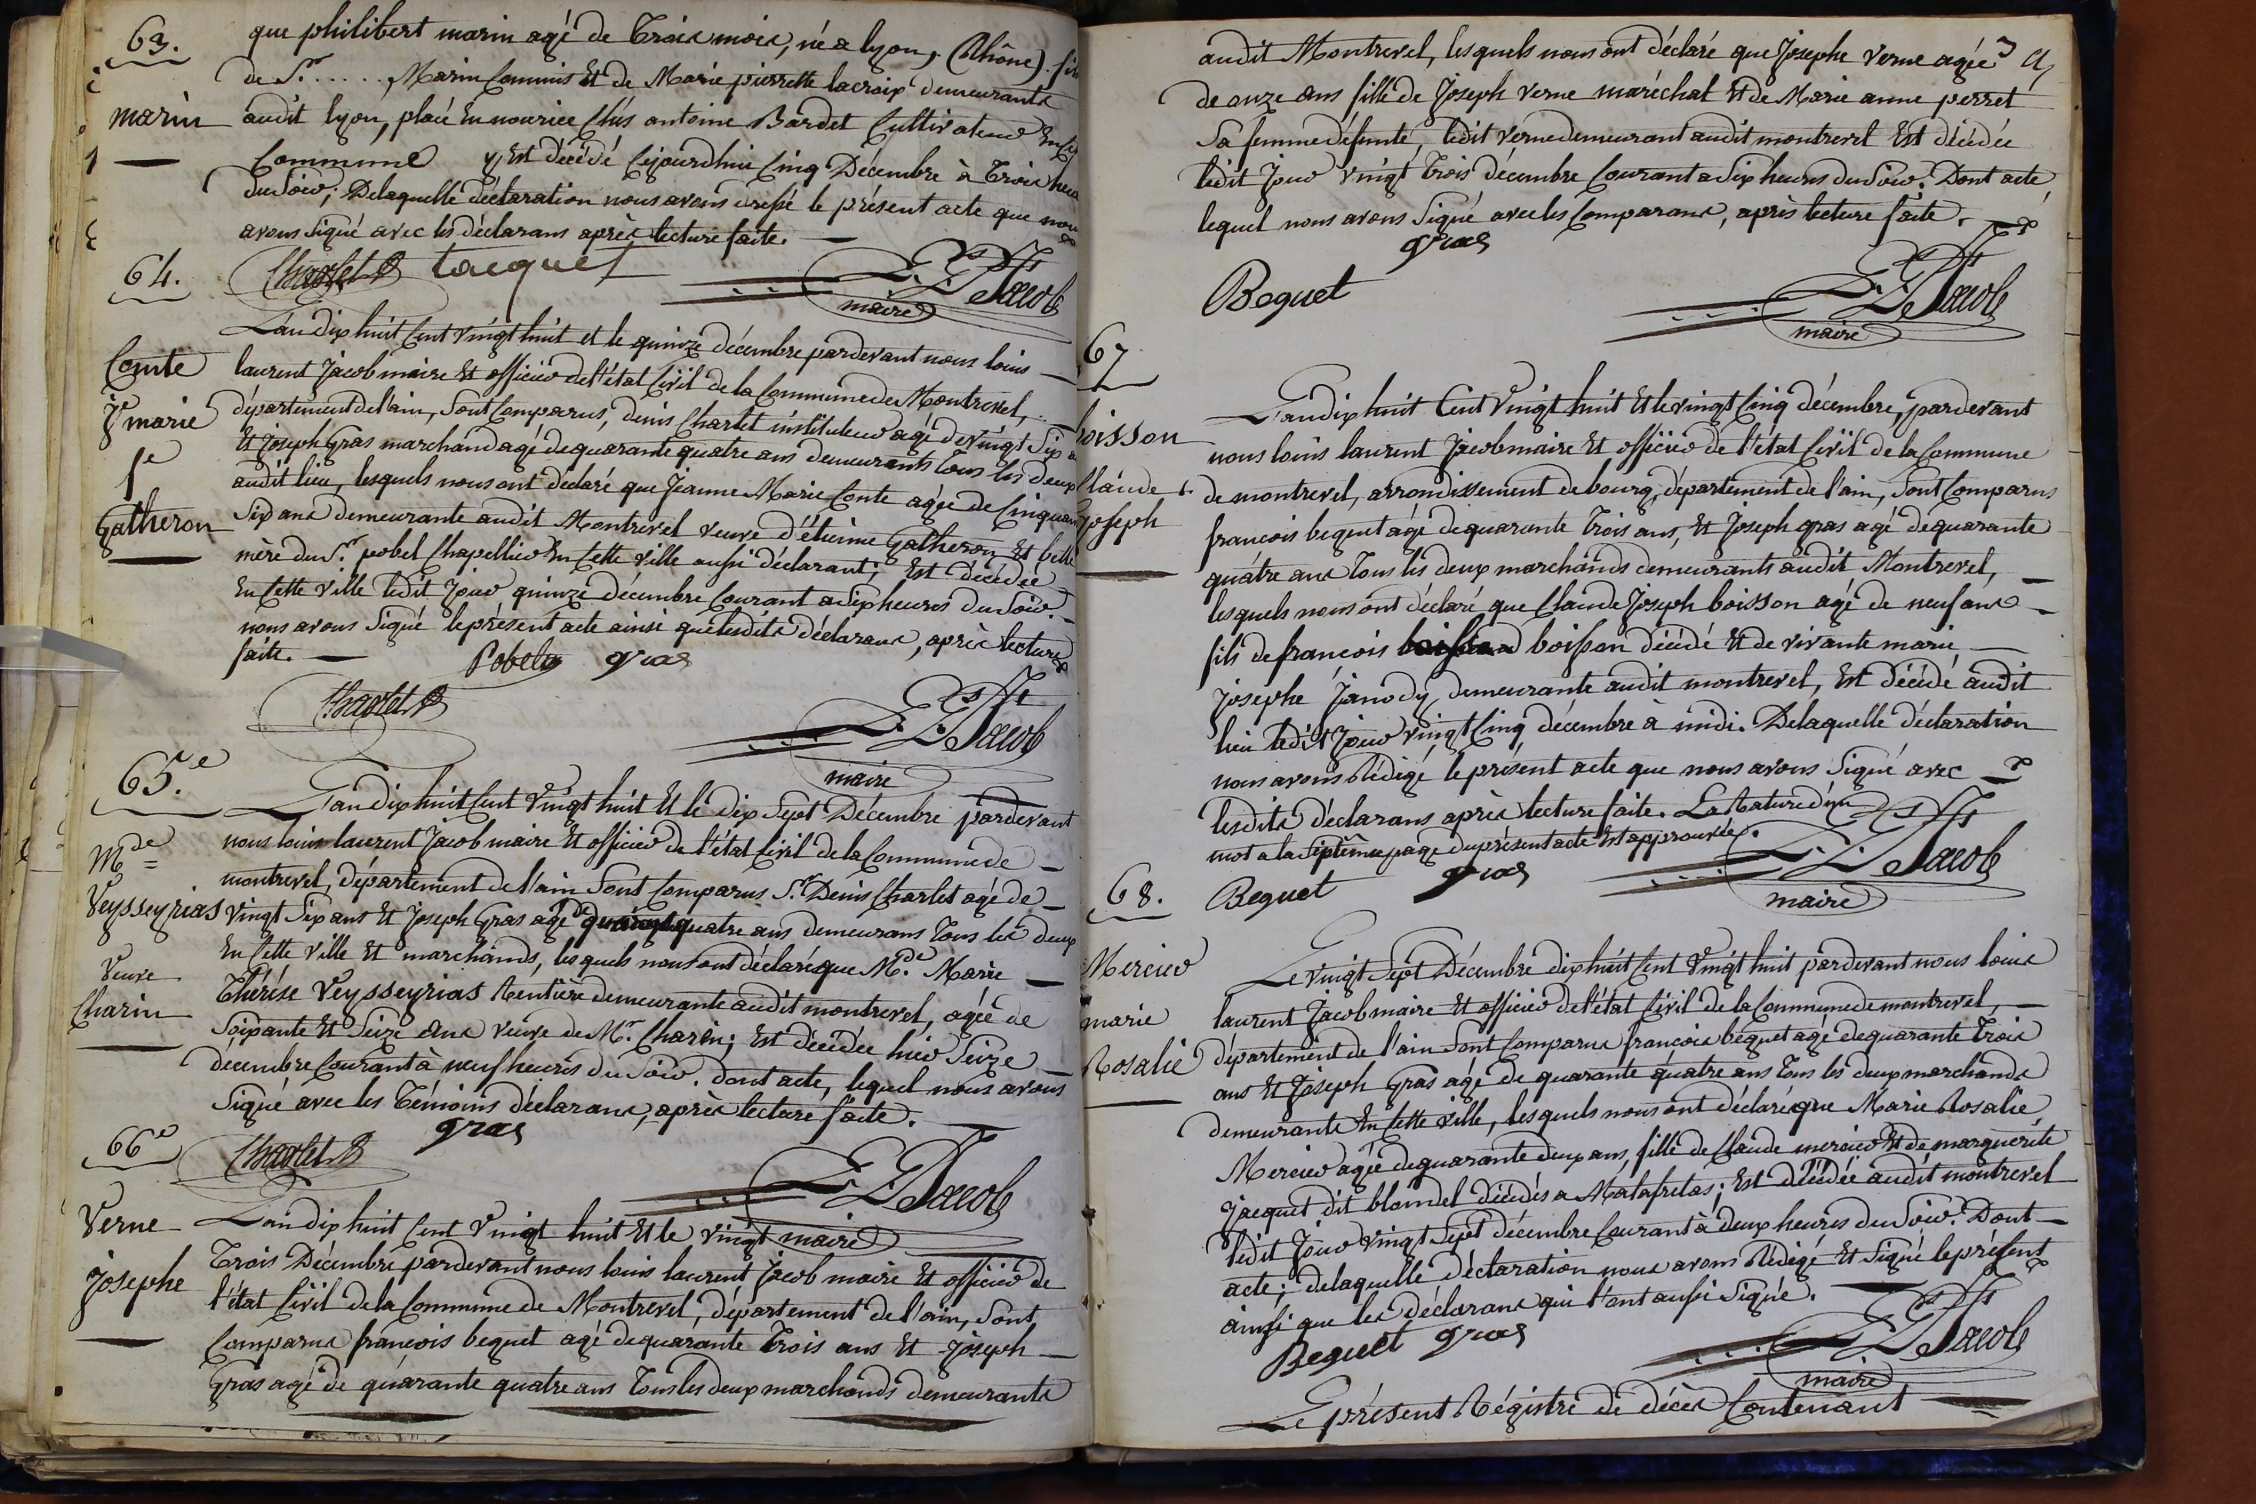 63.
marin
que philibert marin agé de Trois mois, né a lyon, (Rhône) fils
de Sr. ..... Marin Commis Et de Marie pierrette lacroix demeurants
audit lyon, placé En nourice Chés antoine Bardet Cultivateur En
Commune y Est décédé Cejourdhui Cinq Décembre à Trois heures
du Soir; Delaquelle déclaration nous avons dressé le présent acte que nous
avons Signé avec les déclarans après lecture faite.
Charlet tacquet
L. L. Jacob
maire
64.
Comte
Je marie
fe
Gatheron
L'an dix huit Cent vingt huit et le quinze décembre pardevant nous louis
laurent Jacob maire Et officier de l'état Civil de la Commune de Montrevel,
département de l'ain, Sont Comparus, denis Charlet instituteur agé de vingt Six
Et Joseph Gras marchand agé de quarante quatre ans demeurants Tous les deux
audit lieu, lesquels nous ont déclaré que Jeanne Marie Conte agée de Cinquante
Six ans demeurante audit Montrevel veuve d'étienne Gatheron Et belle
mère du Sr. pobel Chapellier En Cette ville aussi déclarant; Est décédée
En Cette ville ledit Jour quinze décembre Courant a Six heures du Soir.
nous avons Signé le présent acte ainsi que lesdits déclarans, après lecture
faite.
Pobel gras
Charlet
L. L. Jacob
maire
65.e
Mde
Veysseyrias
Veuve
Charin
L'an dix huit Cent vingt huit Et le dix Sept Décembre pardevant
nous louis laurent Jacob maire Et officier de l'état Civil de la Commune de
montrevel, département de l'ain Sont Comparus Sr. Denis Charlet agé de
vingt Six ans Et Joseph Gras agé de quarante quatre ans demeurans Tous les deux
En Cette ville Et marchands, lesquels nous ont déclaré que Mde. Marie
Thérése Veysseyrias Rentière demeurante audit montrevel, agée de
Soixante Et Seize ans veuve de Mr. Charin; Est décédée hier Seize
décembre Courant à neuf heures du Soir. dont acte, lequel nous avons
Signé avec les Témoins déclarans, après lecture faite.
Charlet gras
L. L. Jacob
maire
66e
Verne
Josephe
L'an dix huit Cent vingt huit Et le vingt
Trois Décembre pardevant nous louis laurent Jacob maire Et officier de
l'état Civil de la Commune de Montrevel, département de l'ain, Sont
Comparus françois bequet agé de quarante Trois ans Et Joseph
Gras agé de quarante quatre ans Tous les deux marchands demeurants
audit Montrevel, lesquels nous ont déclaré que Josephe Verne agée
de onze ans fille de Joseph Verne maréchal Et de Marie anne perret
Sa femme défunte, ledit Verne demeurant audit montrevel Est décédée
ledit Jour vingt Trois décembre Courant a Six heures du Soir. Dont acte,
lequel nous avons Signé avec les Comparans, après lecture faite.
gras
Bequet
L. L. Jacob
maire
67
boisson
Claude
Joseph
L'an dix huit Cent Vingt huit Et le vingt Cinq décembre, pardevant
nous louis laurent Jacob maire Et officier de l'état Civil de la Commune
de montrevel, arrondissement de bourg, département de l'ain, Sont Comparus
francois bequet agé de quarante Trois ans, Et Joseph gras agé de quarante
quatre ans Tous les deux marchands demeurants audit Montrevel,
lesquels nous ont déclaré que Claude Joseph boisson agé de neuf ans
fils de françois boisson décédé Et de vivante marie
Josephe Janody demeurante audit montrevel, Est décédé audit
lieu ledit Jour vingt Cinq décembre à midi. Delaquelle déclaration
nous avons Rédigé le présent acte que nous avons Signé avec
lesdits déclarans après lecture faite. La Rature d'un
mot a la Septième page du présent acte Est approuvée.
Bequet gras
L. L. Jacob
maire
68.
Mercier
marie
Rosalie
Le vingt Sept Décembre dix huit Cent Vingt huit pardevant nous louis
laurent Jacob maire Et officier de l'état Civil de la Commune de montrevel,
département de l'ain Sont Comparus françois bequet agé de quarante Trois
ans Et Joseph Gras agé de quarante quatre ans Tous les deux marchands
demeurants En Cette ville, lesquels nous ont déclaré que Marie Rosalie
Mercier agée de quarante deux ans, fille de Claude mercier Et de marguerite
Jacquet dit blondel décédés a Malafretas; Est décédée audit montrevel
ledit Jour vingt Sept décembre Courant à deux heures du Soir. Dont
acte; delaquelle déclaration nous avons Rédigé Et Signé le présent
ainsi que les déclarans qui l'ont aussi Signé.
Bequet gras
L. L. Jacob
maire
Le présent Régistre de décès Contenant